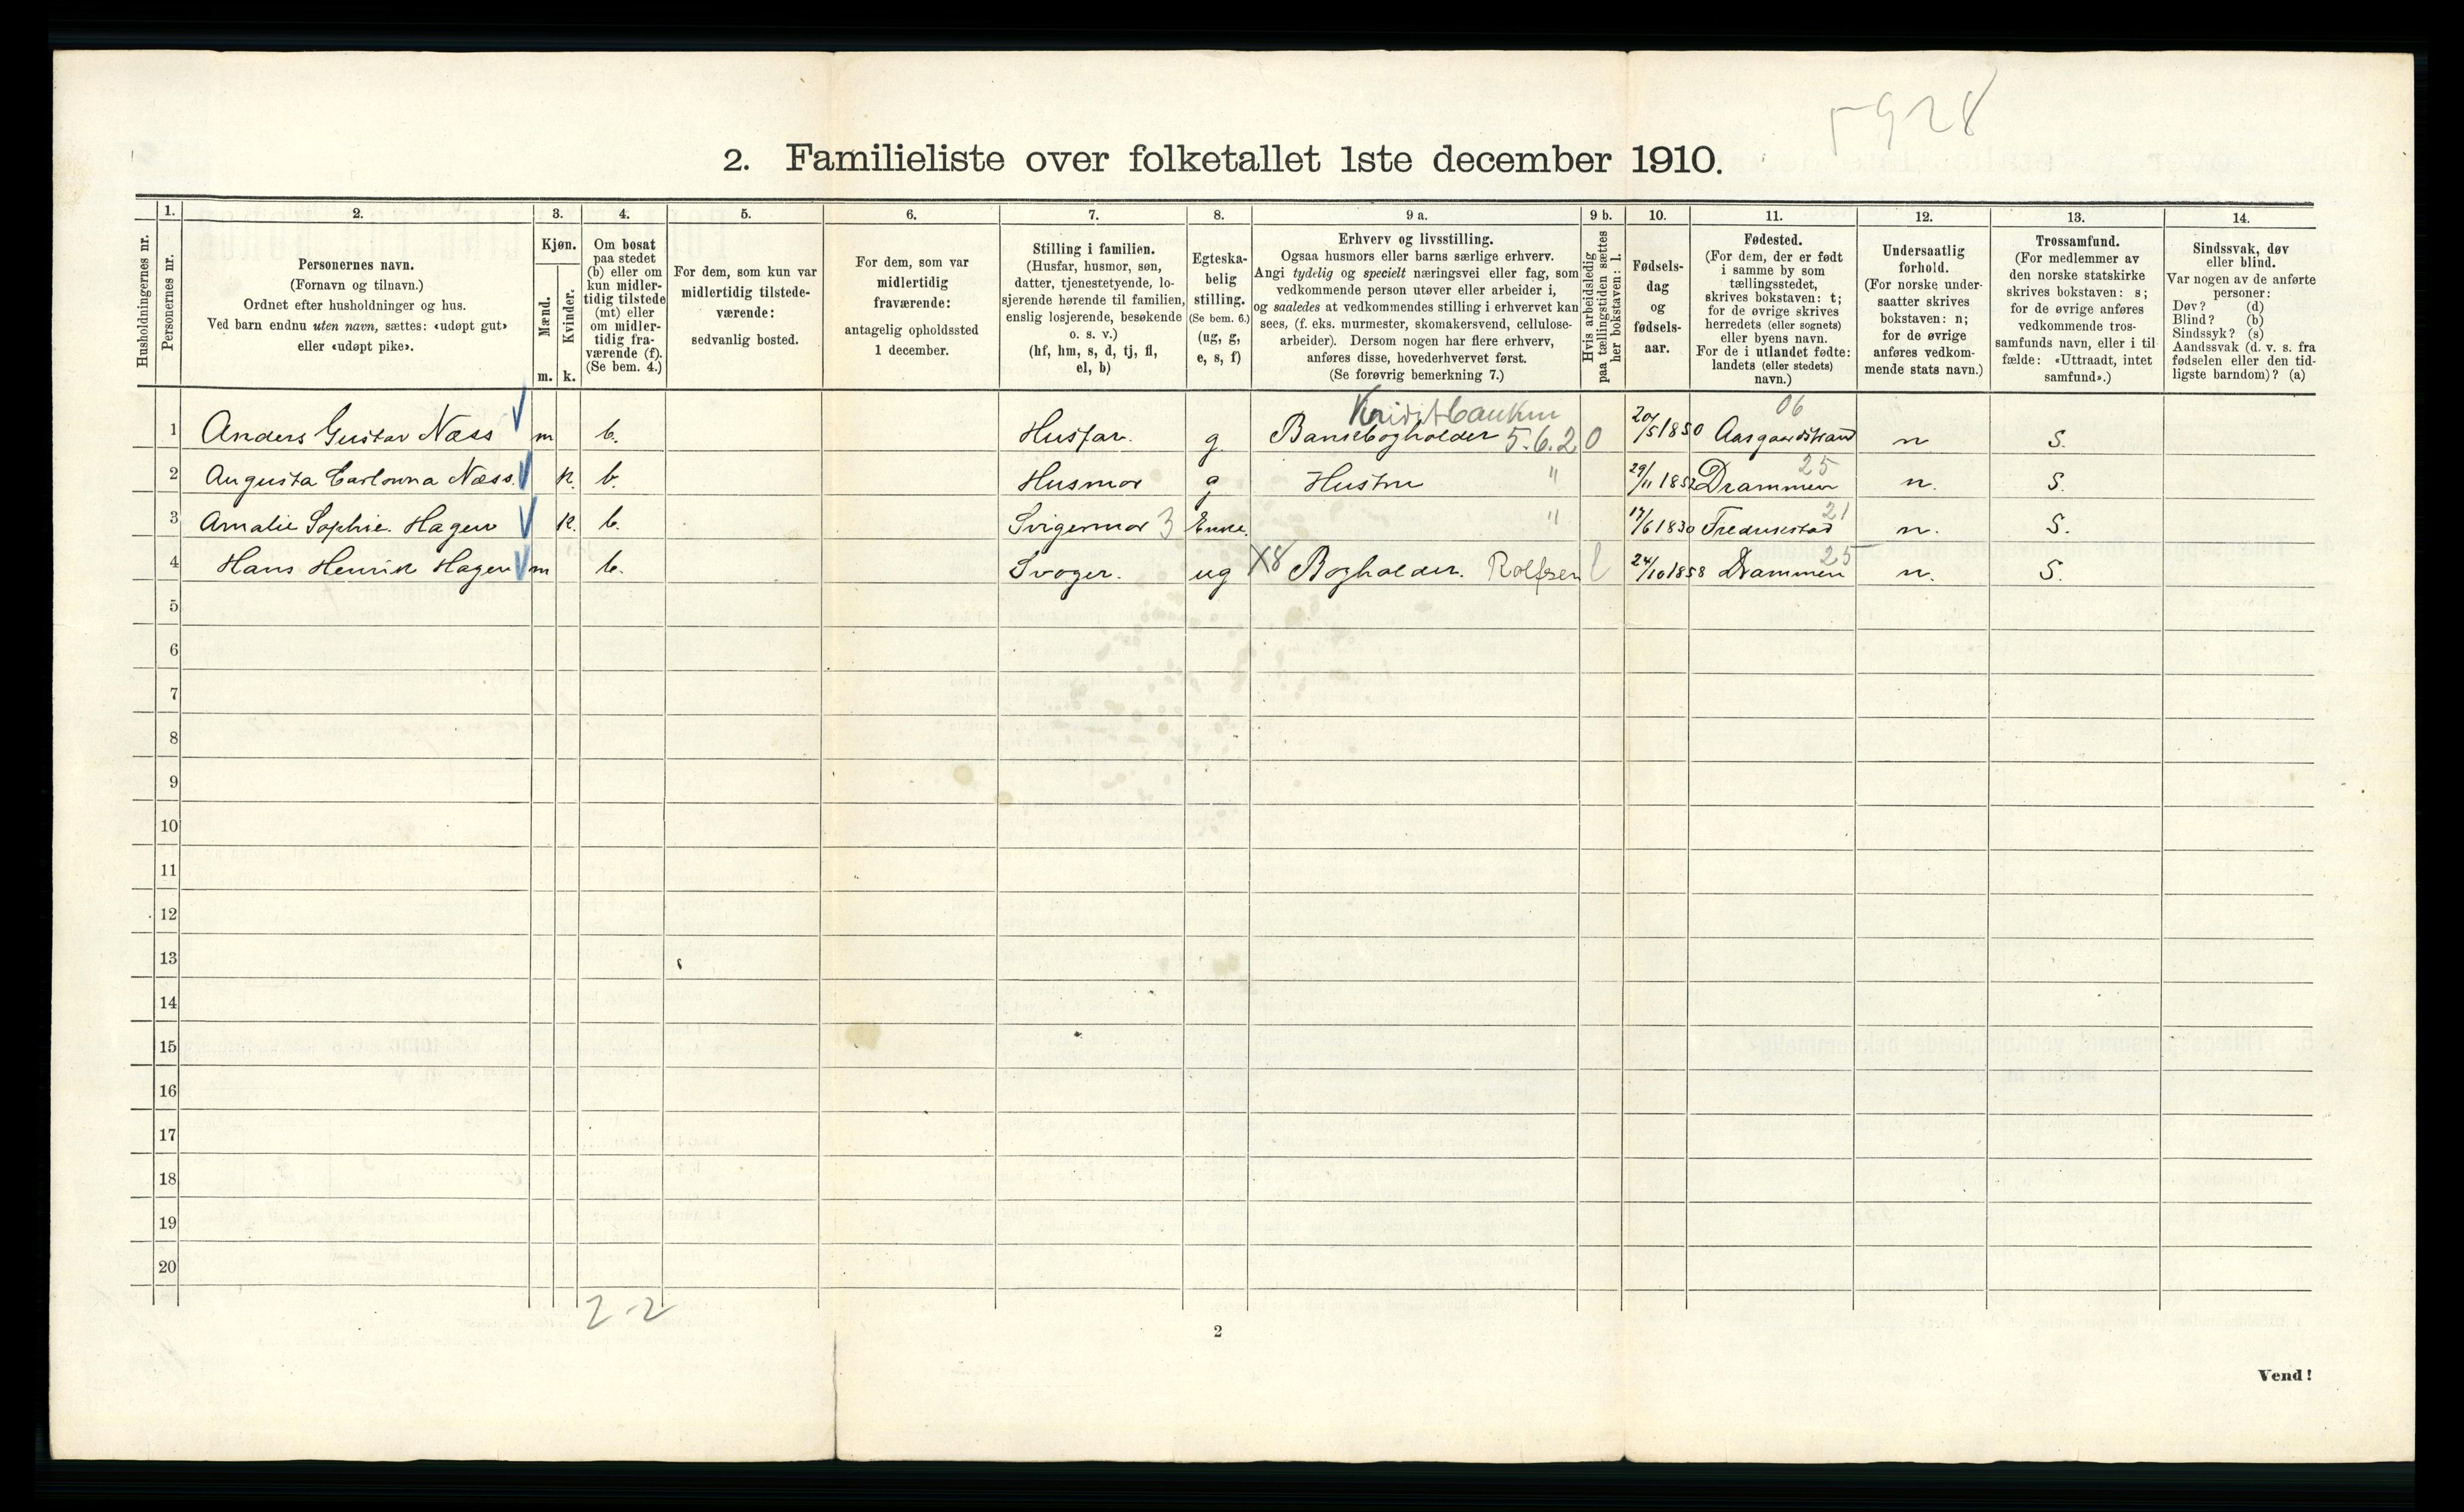 5928
2. Familieliste over folketallet 1ste december 1910.
Husholdningernes nr.
1.
Personernes nr.
2.
Personernes navn.
(Fornavn og tilnavn.)
Ordnet efter husholdninger og hus.
Ved barn endnu uten navn, sættes: «udøpt gut»
eller «udøpt pike».
3.
Kjøn.
Mænd.
Kvinder.
m. k.
4.
Om bosat
paa stedet
(b) eller om
kun midler-
tidig tilstede
(mt) eller
om midler-
tidig fra-
værende (f).
(Se bem. 4.)
5.
For dem, som kun var
midlertidig tilstede-
værende:
sedvanlig bosted.
6.
For dem, som var
midlertidig
fraværende:
antagelig opholdssted
1 december.
7.
Stilling i familien.
(Husfar, husmor, søn,
datter, tjenestetyende, lo-
sjerende hørende til familien,
enslig losjerende, besøkende
o. s. v.)
(hf, hm, s, d, tj, fl,
el, b)
8.
Egteska-
belig
stilling.
(Se bem. 6.)
(ug, g,
e, s, f)
9 a.
Erhverv og livsstilling.
Ogsaa husmors eller barns særlige erhverv.
Angi tydelig og specielt næringsvei eller fag, som
vedkommende person utøver eller arbeider i,
og saaledes at vedkommendes stilling i erhvervet kan
sees, (f. eks. murmester, skomakersvend, cellulose-
arbeider). Dersom nogen har flere erhverv,
anføres disse, hovederhvervet først.
(Se forøvrig bemerkning 7.)
9 b.
Hvis arbeidsledig
paa tællingstiden sættes
her bokstaven: l.
10.
Fødsels-
dag
og
fødsels-
aar.
11.
Fødested.
(For dem, der er født
i samme by som
tællingsstedet,
skrives bokstaven: t;
for de øvrige skrives
herredets (eller sognets)
eller byens navn.
For de i utlandet fødte:
landets (eller stedets)
navn.)
12.
Undersaatlig
forhold.
(For norske under-
saatter skrives
bokstaven: n;
for de øvrige
anføres vedkom-
mende stats navn.)
13.
Trossamfund.
(For medlemmer av
den norske statskirke
skrives bokstaven: s;
for de øvrige anføres
vedkommende tros-
samfunds navn, eller i til-
fælde: «Uttraadt, intet
samfund».)
14.
Sindssvak, døv
eller blind.
Var nogen av de anførte
personer:
Døv? (d)
Blind? (b)
Sindssyk? (s)
Aandssvak (d. v. s. fra
fødselen eller den tid-
ligste barndom)? (a)
06
1 Anders Gustav Næss m b. Husfar. g. Bankbogholder 5.6.20 20/5 1850 Aasgaardstrand n S.
25
2 Augusta Carlowna Næss. k. b. Husmor g Hustru " 29/11 1852 Drammen n. S.
21
3 Amalie Sophie Hagen k. b. Svigermor 3 Enke. " 17/6 1830 Fredrikstad n. S.
25
4 Hans Henrik Hagen m b. Svoger. ug X8 Bogholder. Rolfsen l 24/10 1858 Drammen n. S.
5
6
7
8
9
10
11
12
13
14
15
16
17
18
19
20
2-2
2
Vend!